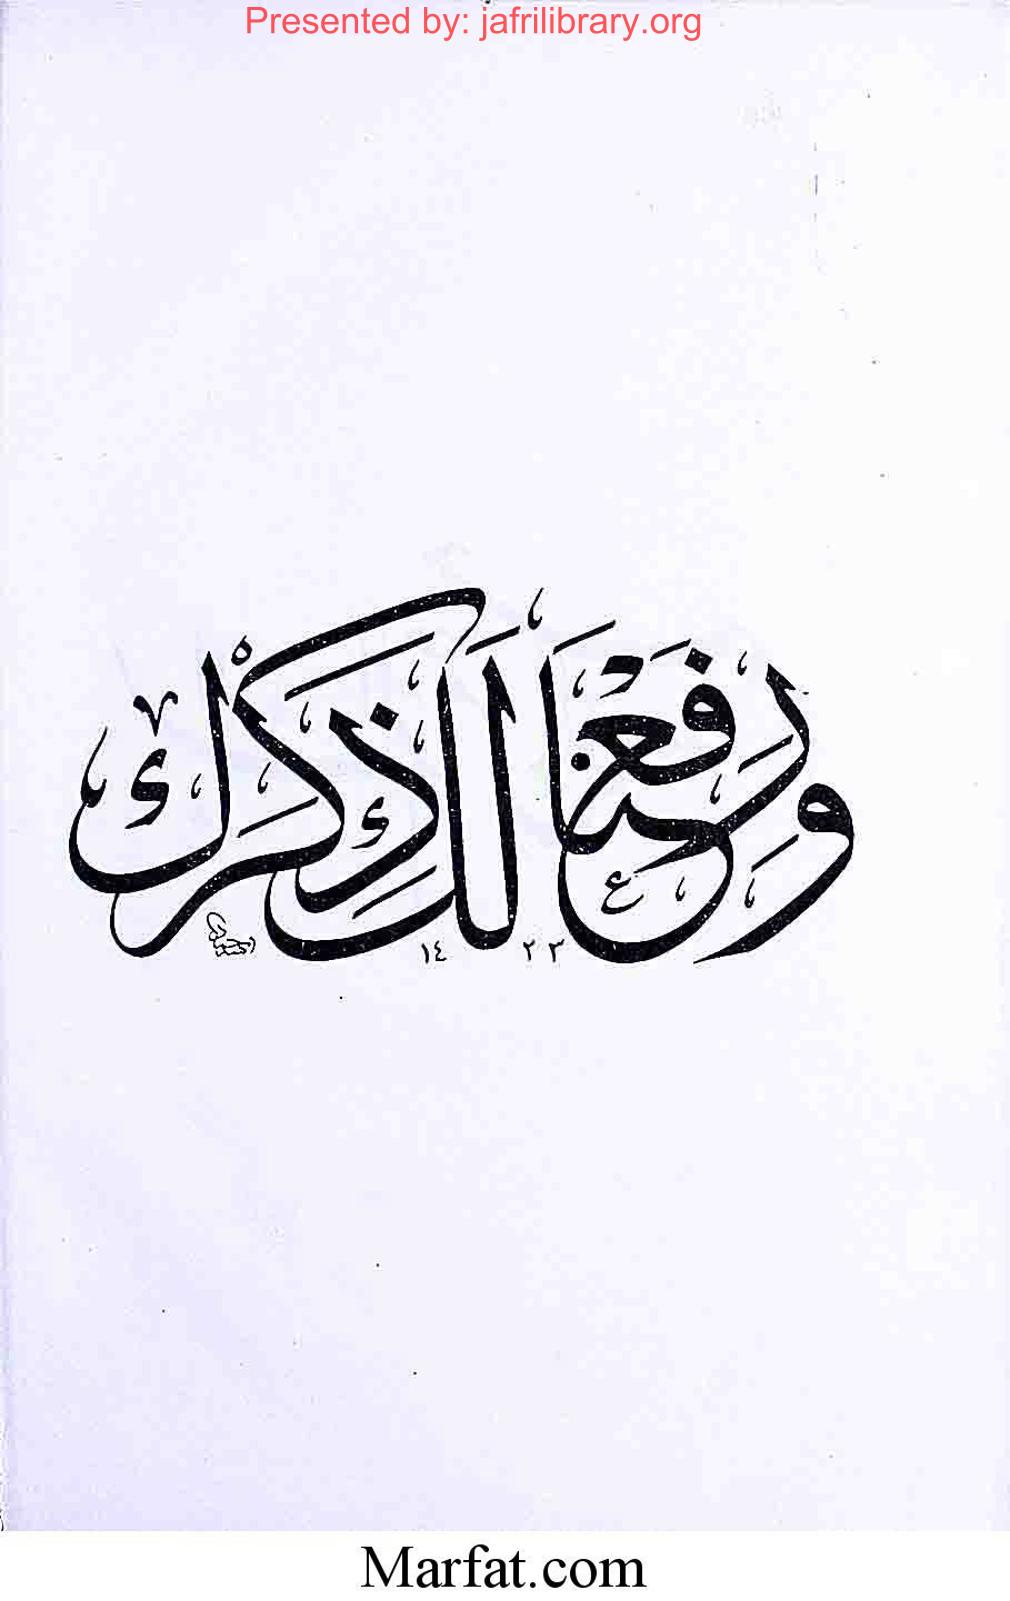 Presented by: jafrilibrary.org
وَرَفَعْنَا لَكَ ذِكْرَكَ
١٤ ٢٣
Marfat.com